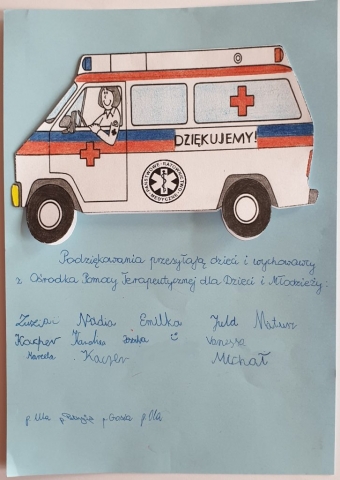 DZIĘKUJEMY!
PAŃSTWOWE RATOWNICTWO MEDYCZNE
Podziękowania przesyłają dzieci i wychowawcy
z Ośrodka Pomocy Terapeutycznej dla Dzieci i Młodzieży:
Nadia Emilka Mateusz
Kacper Karolina Vanessa
Marcela Kacper Michał
p. Ula p. Gosia p. Ula